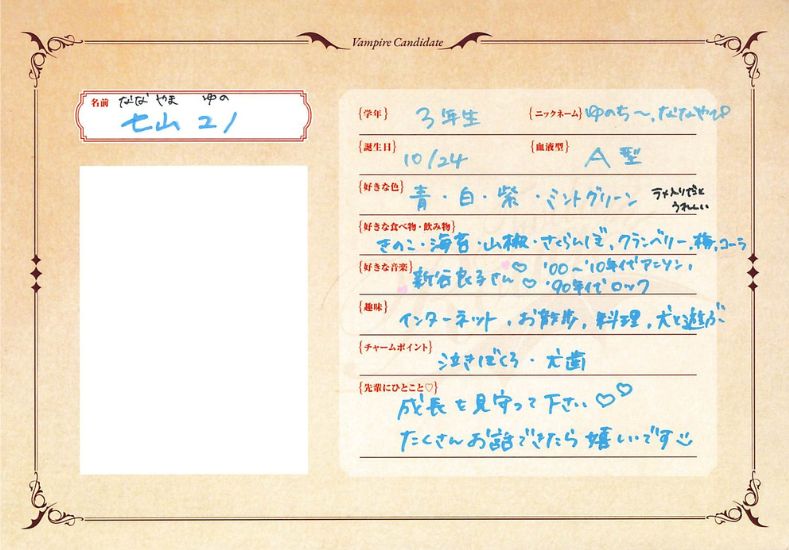 Vampire Candidate
名前 ななやま ゆの
七山ユノ
{学年} 3年生
{ニックネーム} ゆのち〜、ななやま
{誕生日} 10/24
{血液型} A型
{好きな色} 青・白・紫・ミントグリーン ラメ入りだと
うれしい
{好きな食べ物・飲み物}
きのこ・海苔・山椒・さくらんぼ、クランベリー、梅、コーラ
{好きな音楽} 新谷良子さん♡♡ '00〜'10年代アニソン、
'90年代ロック
{趣味}
インターネット、お散歩、料理、犬と遊ぶ
{チャームポイント}
泣きぼくろ・犬歯
{先輩にひとこと♡}
成長を見守って下さい♡♡
たくさんお話できたら嬉しいです